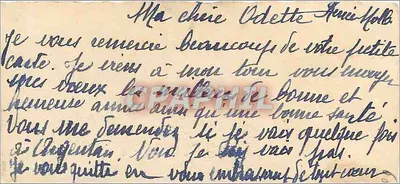 Ma chère Odette
je vous remercie beaucoup de votre petite
carte. Je viens à mon tour vous envoyer
mes vœux les meilleurs de bonne et
heureuse année ainsi qu'une bonne santé
Vous me demandez si je vais quelque fois
à Argentan. Non je n'y vais pas.
Je vous quitte en vous embrassant de tout cœur
CPAPHIL